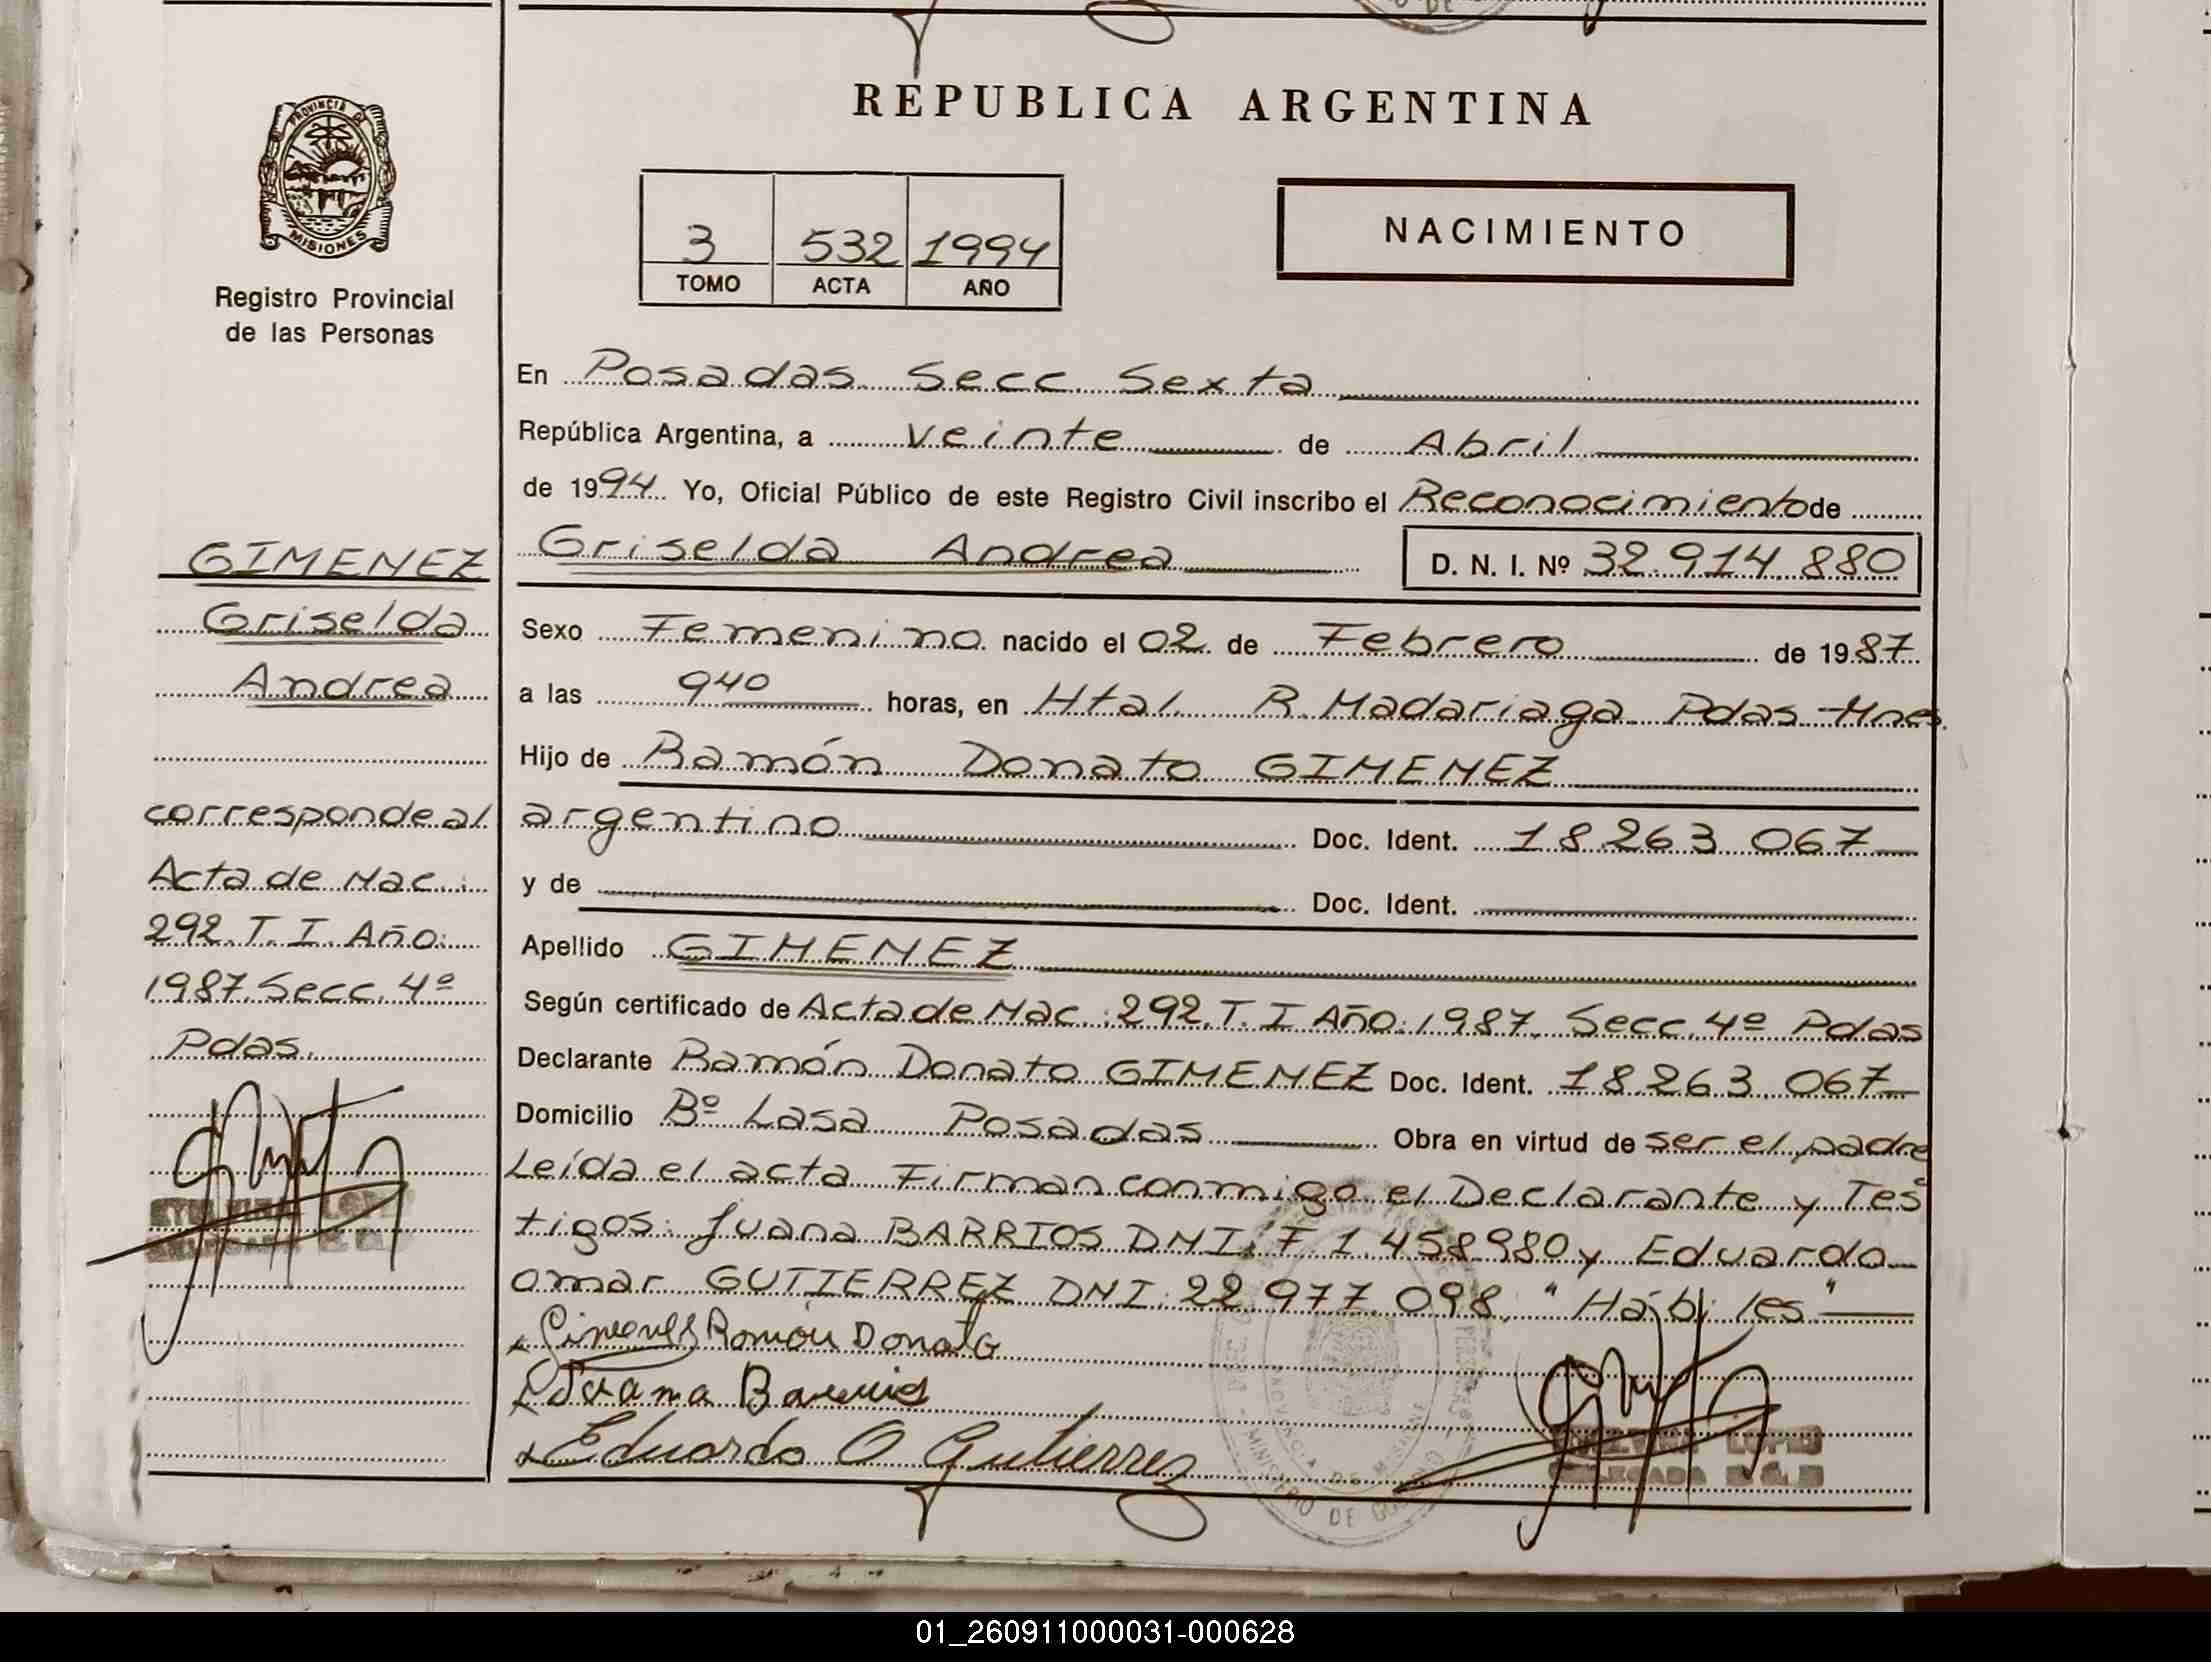 REPUBLICA ARGENTINA
PROVINCIA DE
MISIONES
Registro Provincial
de las Personas
3 532 1994
TOMO ACTA AÑO
NACIMIENTO
En Posadas Secc. Sexta
República Argentina, a veinte de Abril
de 1994 Yo, Oficial Público de este Registro Civil inscribo el Reconocimiento de
Griselda Andrea D. N. I. Nº 32.914.880
Sexo Femenino nacido el 02 de Febrero de 1987
a las 940 horas, en Htal. R. Madariaga Pdas-Mnes.
Hijo de Ramón Donato GIMENEZ
argentino Doc. Ident. 18.263.067
y de Doc. Ident.
Apellido GIMENEZ
Según certificado de Acta de Nac.: 292. T. I Año: 1987. Secc. 4º Pdas
Declarante Ramón Donato GIMENEZ Doc. Ident. 18.263.067
Domicilio Bº Lasa Posadas Obra en virtud de ser el padre
Leída el acta Firman conmigo el Declarante y Tes
tigos: Juana BARRIOS DNI. F 1.458980 y Eduardo
omar GUTIERREZ DNI. 22.977.098. "Hábiles"
Ramón Donato
Juana
Eduardo O Gutierrez
GIMENEZ
Griselda
Andrea
corresponde al
Acta de Nac.:
292. T. I. Año:
1987. Secc. 4º
Pdas.
LOPEZ
DELEGADA
MINISTERIO DE
PROVINCIA DE MISIONES
LOPEZ
DELEGADA
01_260911000031-000628